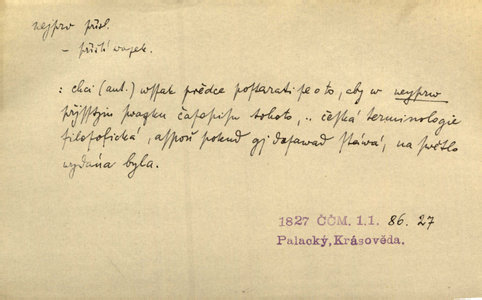 nejprv přísl.
– příští wazek.
: chci (aut.) wssak předce postarati se o to, aby w neyprw
přjsstjm swazku časopisu tohoto, .. česká terminologie
filosofická, aspoň pokud gj dosawad stáwá, na swětlo
wydána byla.
1827 ČČM. 1.1. 86. 27
Palacký, Krásověda.